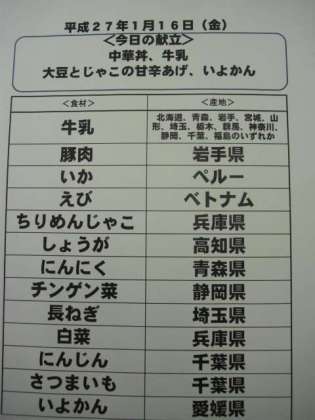 平成２７年１月１６日（金）
＜今日の献立＞
中華丼、牛乳
大豆とじゃこの甘辛あげ、いよかん
＜食材＞ ＜産地＞
牛乳 北海道、青森、岩手、宮城、山
形、埼玉、栃木、群馬、神奈川、
静岡、千葉、福島のいずれか
豚肉 岩手県
いか ペルー
えび ベトナム
ちりめんじゃこ 兵庫県
しょうが 高知県
にんにく 青森県
チンゲン菜 静岡県
長ねぎ 埼玉県
白菜 兵庫県
にんじん 千葉県
さつまいも 千葉県
いよかん 愛媛県